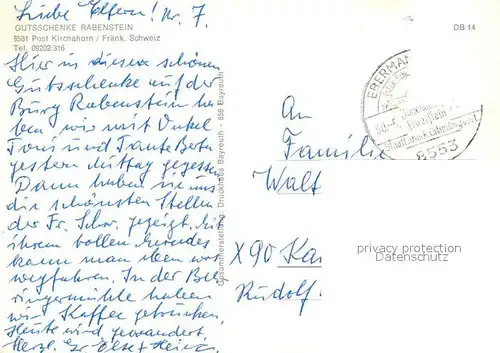 Liebe Eltern! Nr. 7.
GUTSSCHENKE RABENSTEIN
8581 Post Kirchahorn / Fränk. Schweiz
Tel. 09202/316
DB 14
Hier in dieser schönen
Gutsschenke auf der
Burg Rabenstein ha-
ben wir mit Onkel
Toni und Tante Berta
gestern Mittag gegessen.
Dann haben sie uns
die schönsten Stellen
der Fr. Schw. gezeigt. Mit
ihrem vollen
kann man eben
wegfahren. In der Beh-
ringermühle haben
wir Kaffee getrunken.
Heute wird gewandert.
Herzl. Gr. Heinz
Gesamtherstellung Druckhaus Bayreuth · 858 Bayreuth
EBERMAN
8553
An
Familie
Walt
X 90 Ka
Rudolf
privacy protection
Datenschutz